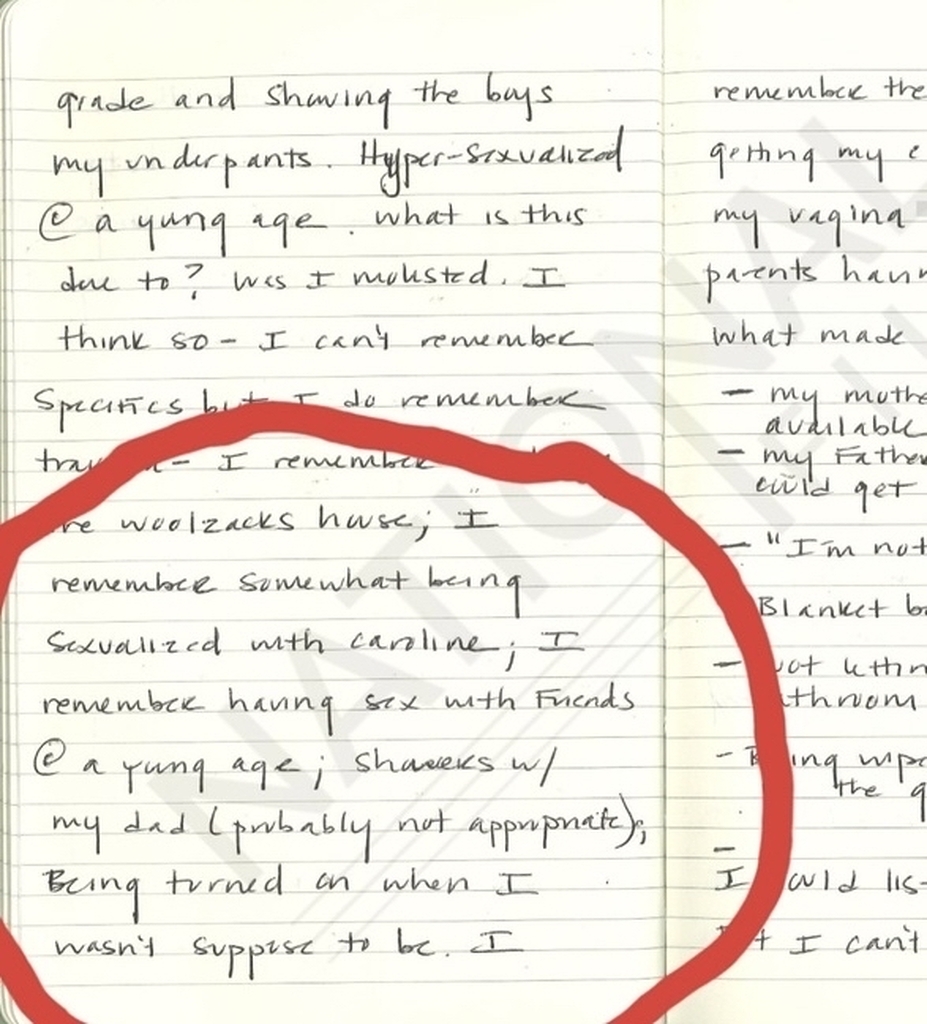 grade and showing the boys
my underpants. Hyper-sexualized
@ a yung age. what is this
due to? Was I molested. I
think so - I can't remember
specifics but I do remember
trauma - I remember
the woolzacks house; I
remember somewhat being
sexualized with caroline; I
remember having sex with Friends
@ a yung age; showers w/
my dad (probably not appropriate);
Being turned on when I
wasn't suppose to be. I
remember the
getting my
my vagina
parents
what made
- my
available
- my Father
could get
- "I'm not
Blanket
-
-
the
-
I
I can't
NATIONAL